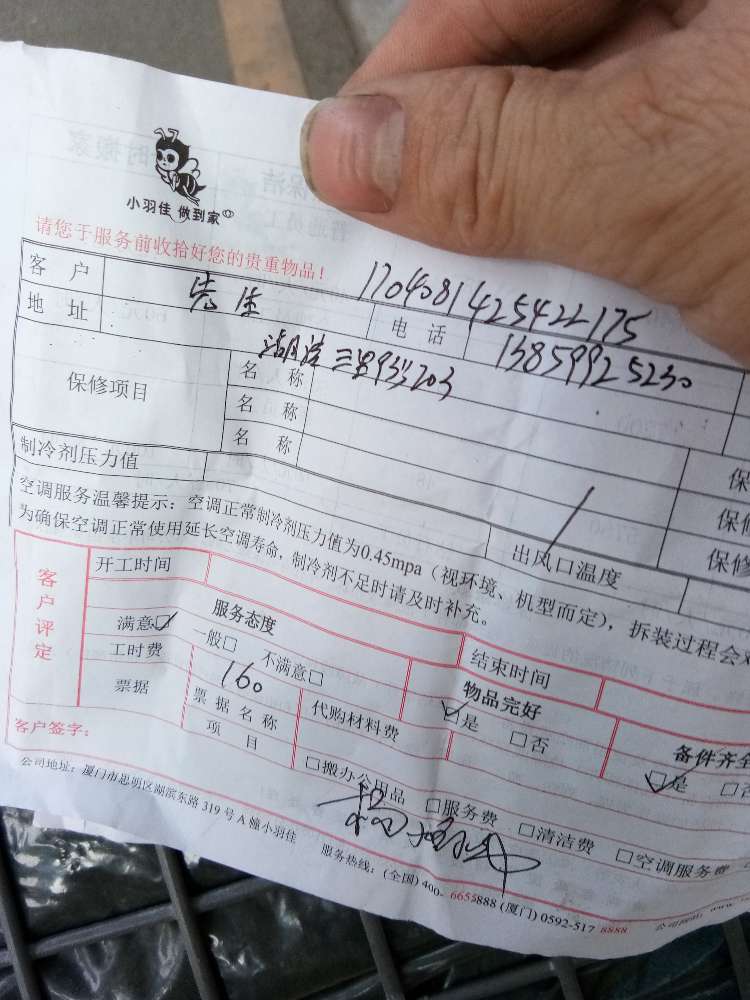 小羽佳 做到家
请您于服务前收拾好您的贵重物品！
1704081425422175
客 户 先生 电 话 13859925230
地 址
保修项目 名 称
名 称
名 称
保
保修
保修
制冷剂压力值 出风口温度
空调服务温馨提示：空调正常制冷剂压力值为0.45mpa（视环境、机型而定），拆装过程会对
为确保空调正常使用延长空调寿命，制冷剂不足时请及时补充。
客户评定
开工时间 结束时间
服务态度 物品完好 备件齐全
满意☑ 一般□ 不满意□ ☑是 □否 ☑是 □否
工时费 160 代购材料费
票据 票据名称
项 目 □搬办公用品 □服务费 □清洁费 □空调服务费
客户签字：
公司地址：厦门市思明区湖滨东路 319 号 A 幢小羽佳 服务热线：(全国) 400-6655888 (厦门) 0592-517 8888